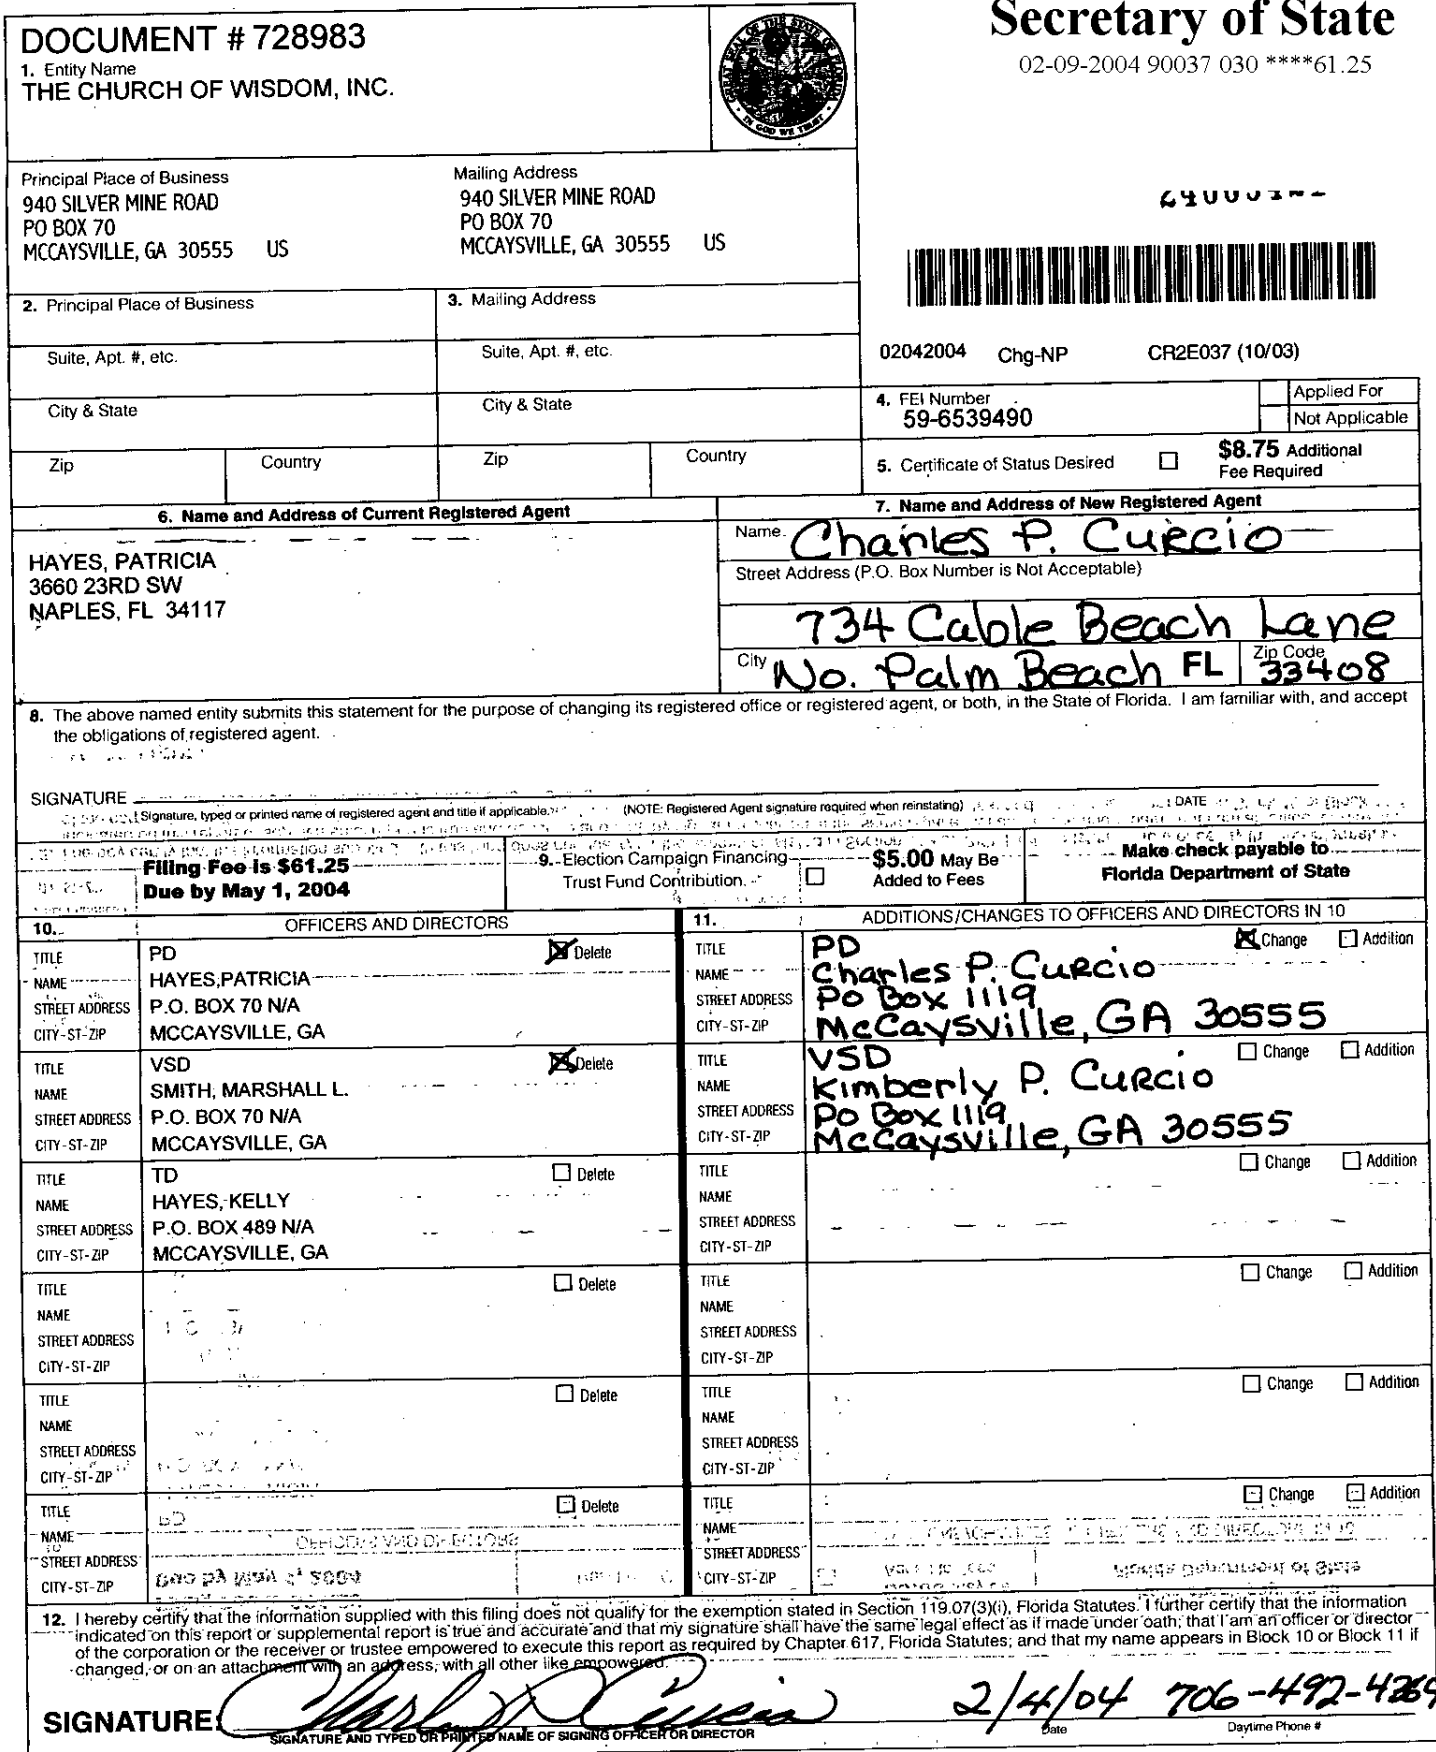 Secretary of State
02-09-2004 90037 030 ****61.25
DOCUMENT # 728983
1. Entity Name
THE CHURCH OF WISDOM, INC.
GREAT SEAL OF THE STATE OF FLORIDA
IN GOD WE TRUST
Principal Place of Business
940 SILVER MINE ROAD
PO BOX 70
MCCAYSVILLE, GA 30555 US
Mailing Address
940 SILVER MINE ROAD
PO BOX 70
MCCAYSVILLE, GA 30555 US
2. Principal Place of Business
3. Mailing Address
Suite, Apt. #, etc.
Suite, Apt. #, etc.
City & State
City & State
Zip
Country
Zip
Country
02042004 Chg-NP CR2E037 (10/03)
4. FEI Number
59-6539490
Applied For
Not Applicable
5. Certificate of Status Desired
$8.75 Additional
Fee Required
6. Name and Address of Current Registered Agent
HAYES, PATRICIA
3660 23RD SW
NAPLES, FL 34117
7. Name and Address of New Registered Agent
Name Charles P. Curcio
Street Address (P.O. Box Number is Not Acceptable)
734 Cable Beach Lane
City No. Palm Beach FL Zip Code 33408
8. The above named entity submits this statement for the purpose of changing its registered office or registered agent, or both, in the State of Florida. I am familiar with, and accept
the obligations of registered agent.
SIGNATURE
Signature, typed or printed name of registered agent and title if applicable. (NOTE: Registered Agent signature required when reinstating) DATE
Filing Fee is $61.25
Due by May 1, 2004
9. Election Campaign Financing
Trust Fund Contribution.
$5.00 May Be
Added to Fees
Make check payable to
Florida Department of State
10. OFFICERS AND DIRECTORS
TITLE PD Delete
NAME HAYES, PATRICIA
STREET ADDRESS P.O. BOX 70 N/A
CITY-ST-ZIP MCCAYSVILLE, GA
TITLE VSD Delete
NAME SMITH, MARSHALL L.
STREET ADDRESS P.O. BOX 70 N/A
CITY-ST-ZIP MCCAYSVILLE, GA
TITLE TD Delete
NAME HAYES, KELLY
STREET ADDRESS P.O. BOX 489 N/A
CITY-ST-ZIP MCCAYSVILLE, GA
TITLE Delete
NAME
STREET ADDRESS
CITY-ST-ZIP
TITLE Delete
NAME
STREET ADDRESS
CITY-ST-ZIP
TITLE Delete
NAME
STREET ADDRESS
CITY-ST-ZIP
11. ADDITIONS/CHANGES TO OFFICERS AND DIRECTORS IN 10
TITLE PD Change Addition
NAME Charles P. Curcio
STREET ADDRESS PO Box 1119
CITY-ST-ZIP McCaysville, GA 30555
TITLE VSD Change Addition
NAME Kimberly P. Curcio
STREET ADDRESS PO Box 1119
CITY-ST-ZIP McCaysville, GA 30555
TITLE Change Addition
NAME
STREET ADDRESS
CITY-ST-ZIP
TITLE Change Addition
NAME
STREET ADDRESS
CITY-ST-ZIP
TITLE Change Addition
NAME
STREET ADDRESS
CITY-ST-ZIP
TITLE Change Addition
NAME
STREET ADDRESS
CITY-ST-ZIP
12. I hereby certify that the information supplied with this filing does not qualify for the exemption stated in Section 119.07(3)(i), Florida Statutes. I further certify that the information
indicated on this report or supplemental report is true and accurate and that my signature shall have the same legal effect as if made under oath; that I am an officer or director
of the corporation or the receiver or trustee empowered to execute this report as required by Chapter 617, Florida Statutes; and that my name appears in Block 10 or Block 11 if
changed, or on an attachment with an address, with all other like empowered.
SIGNATURE: Charles P. Curcio 2/4/04 706-492-4269
SIGNATURE AND TYPED OR PRINTED NAME OF SIGNING OFFICER OR DIRECTOR Date Daytime Phone #